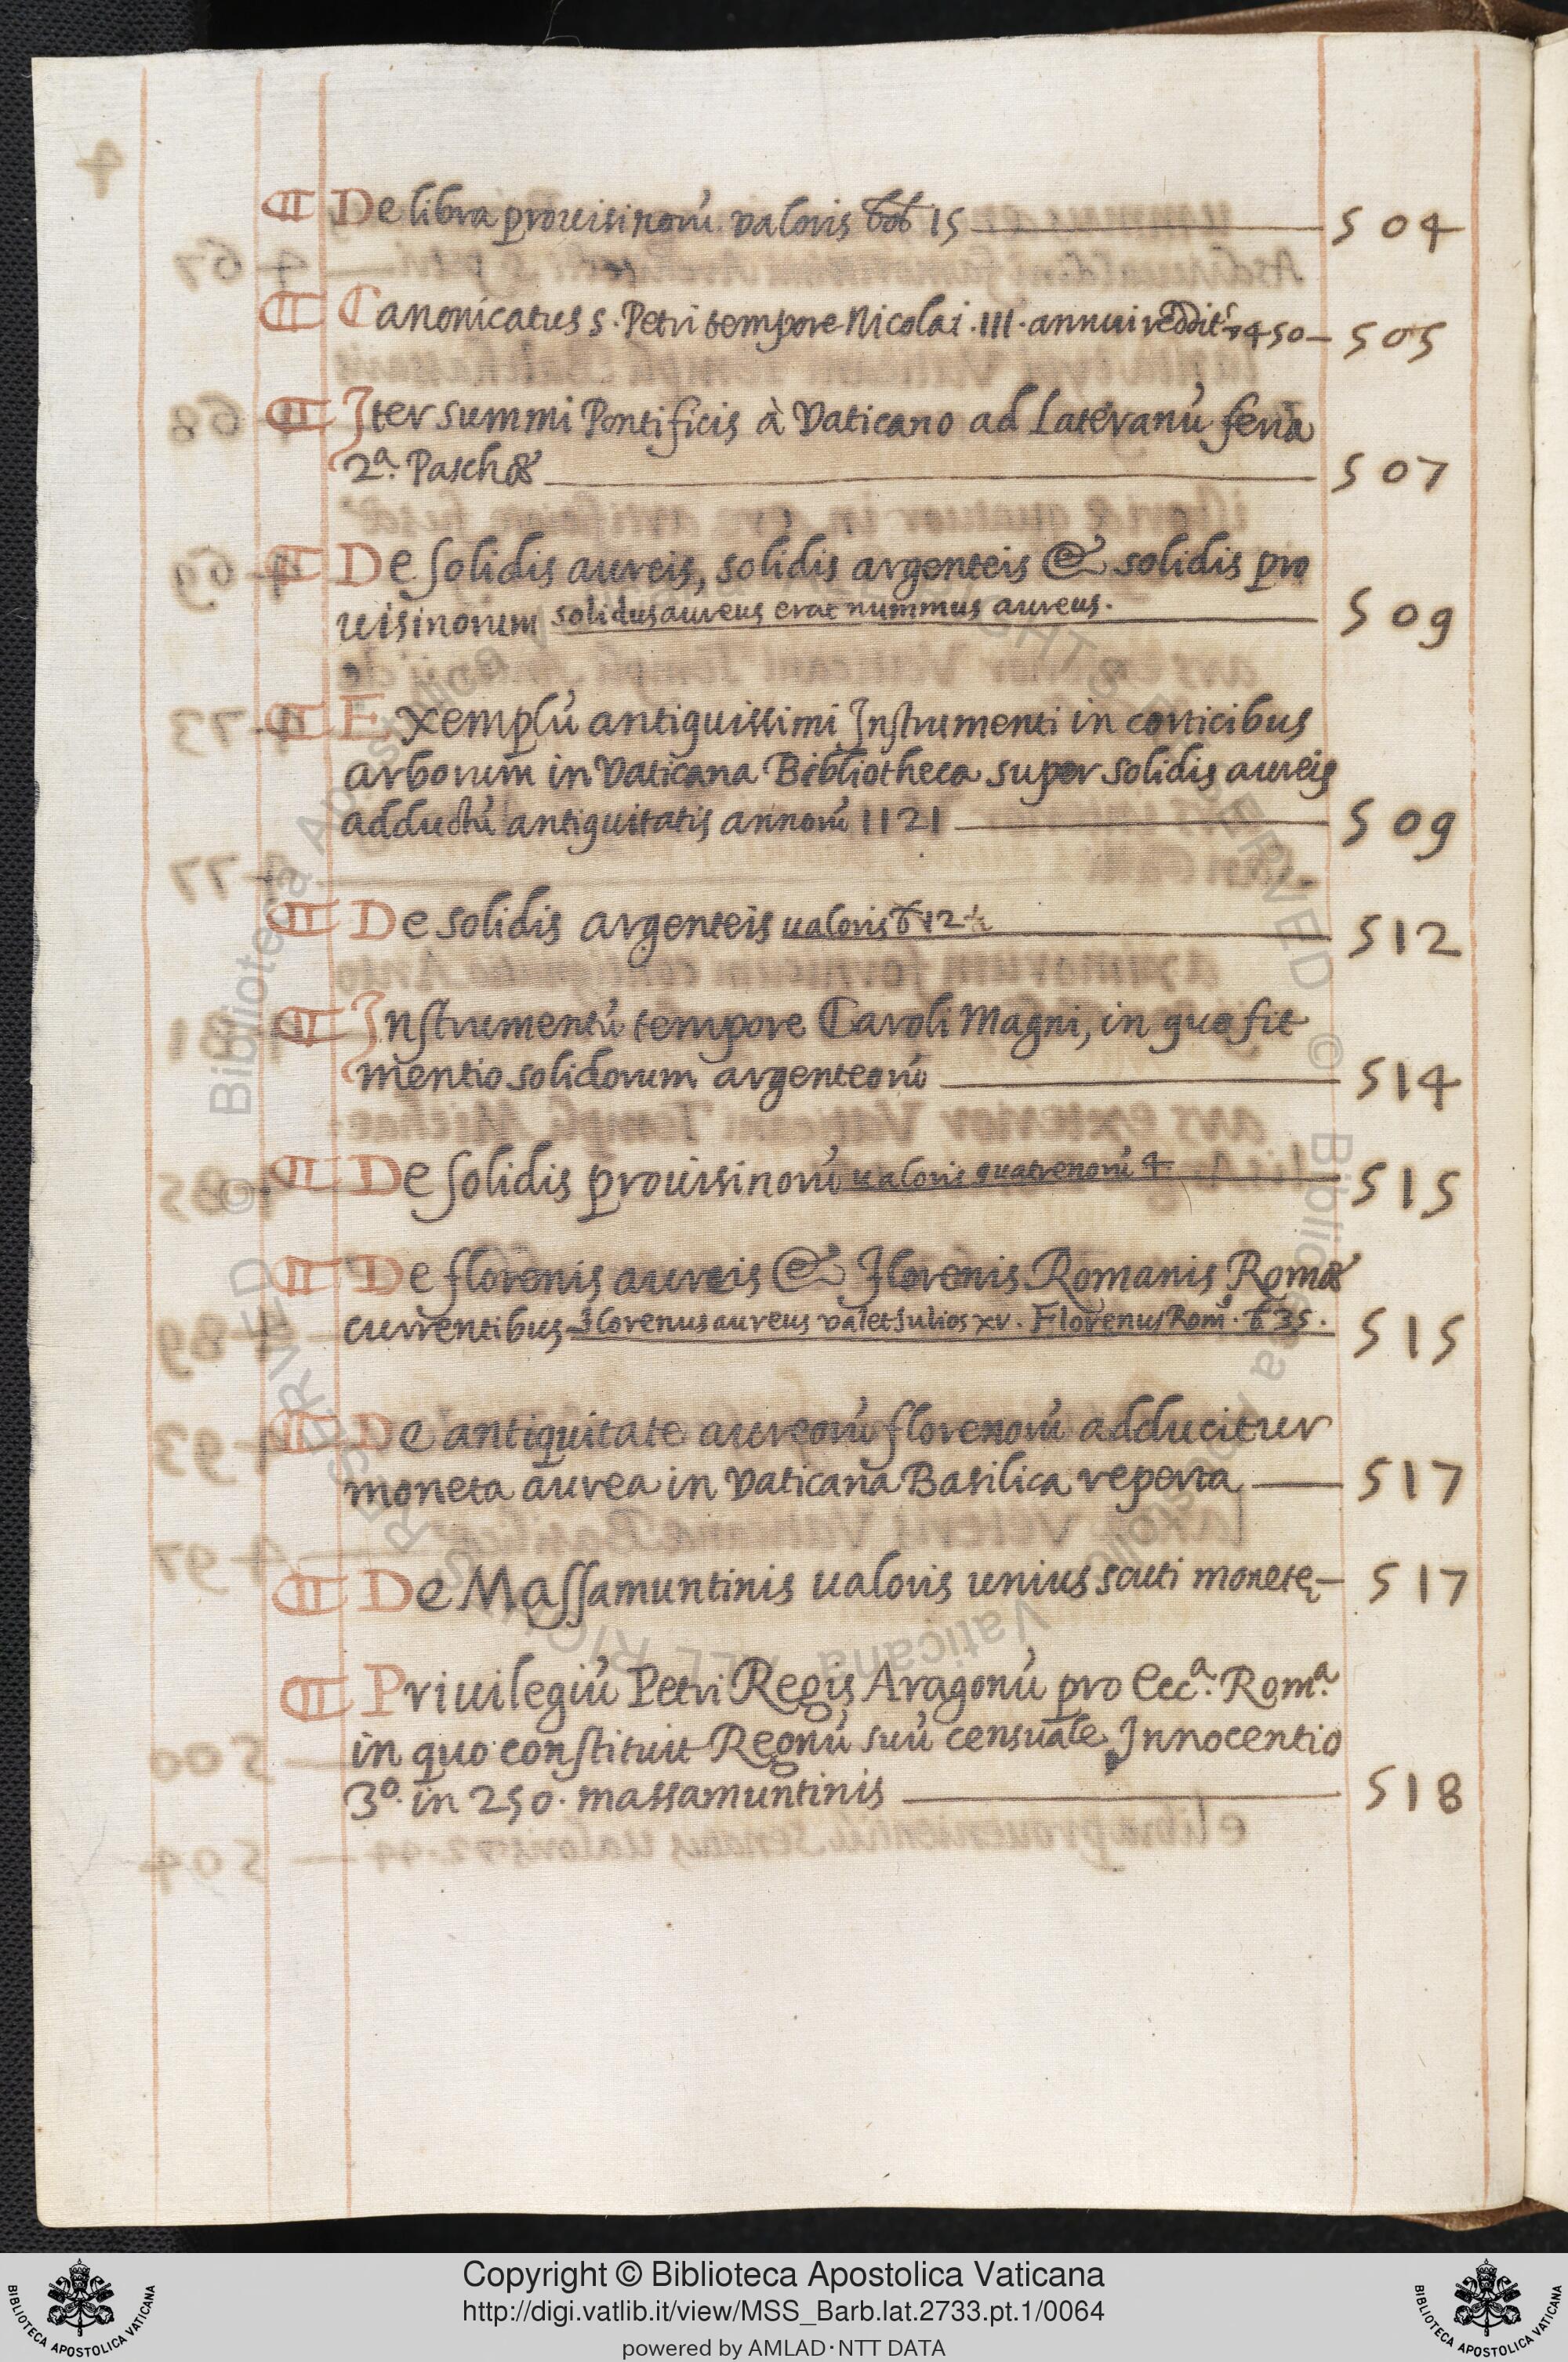 ¶ De libra prouisinorũ valoris 15 — 504
¶ Canonicatus s. Petri tempore Nicolai .III. annui 450 — 505
¶ Iter summi Pontificis à Vaticano ad Lateranũ feria
2ª. Paschæ — 507
¶ De solidis aureis, solidis argenteis & solidis pro
uisinorum solidus aureus erat nummus aureus. 509
¶ Exemplũ antiquissimi Instrumenti in corticibus
arborum in Vaticana Bibliotheca super solidis aureis
adductũ antiquitatis annorũ 1121 — 509
¶ De solidis argenteis ualoris 12 ½ — 512
¶ Instrumentũ tempore Caroli Magni, in quo fit
mentio solidorum argenteorũ — 514
¶ De solidis prouisinorũ ualoris quatrenorũ 4 — 515
¶ De florenis aureis & Florenis Romanis Romæ
currentibus Florenus aureus valet Iulios xv. Florenus Rom. 35. 515
¶ De antiquitate aureorũ florenorũ adducitur
moneta aurea in Vaticana Basilica reperta — 517
¶ De Massamuntinis ualoris unius scuti monetę — 517
¶ Priuilegiũ Petri Regis Aragonũ pro Ecc.ª Rom.ª
in quo constituit Regnũ suũ censuale Innocentio
3º. in 250. massamuntinis — 518
Copyright © Biblioteca Apostolica Vaticana
http://digi.vatlib.it/view/MSS_Barb.lat.2733.pt.1/0064
powered by AMLAD · NTT DATA
BIBLIOTECA APOSTOLICA VATICANA
BIBLIOTECA APOSTOLICA VATICANA